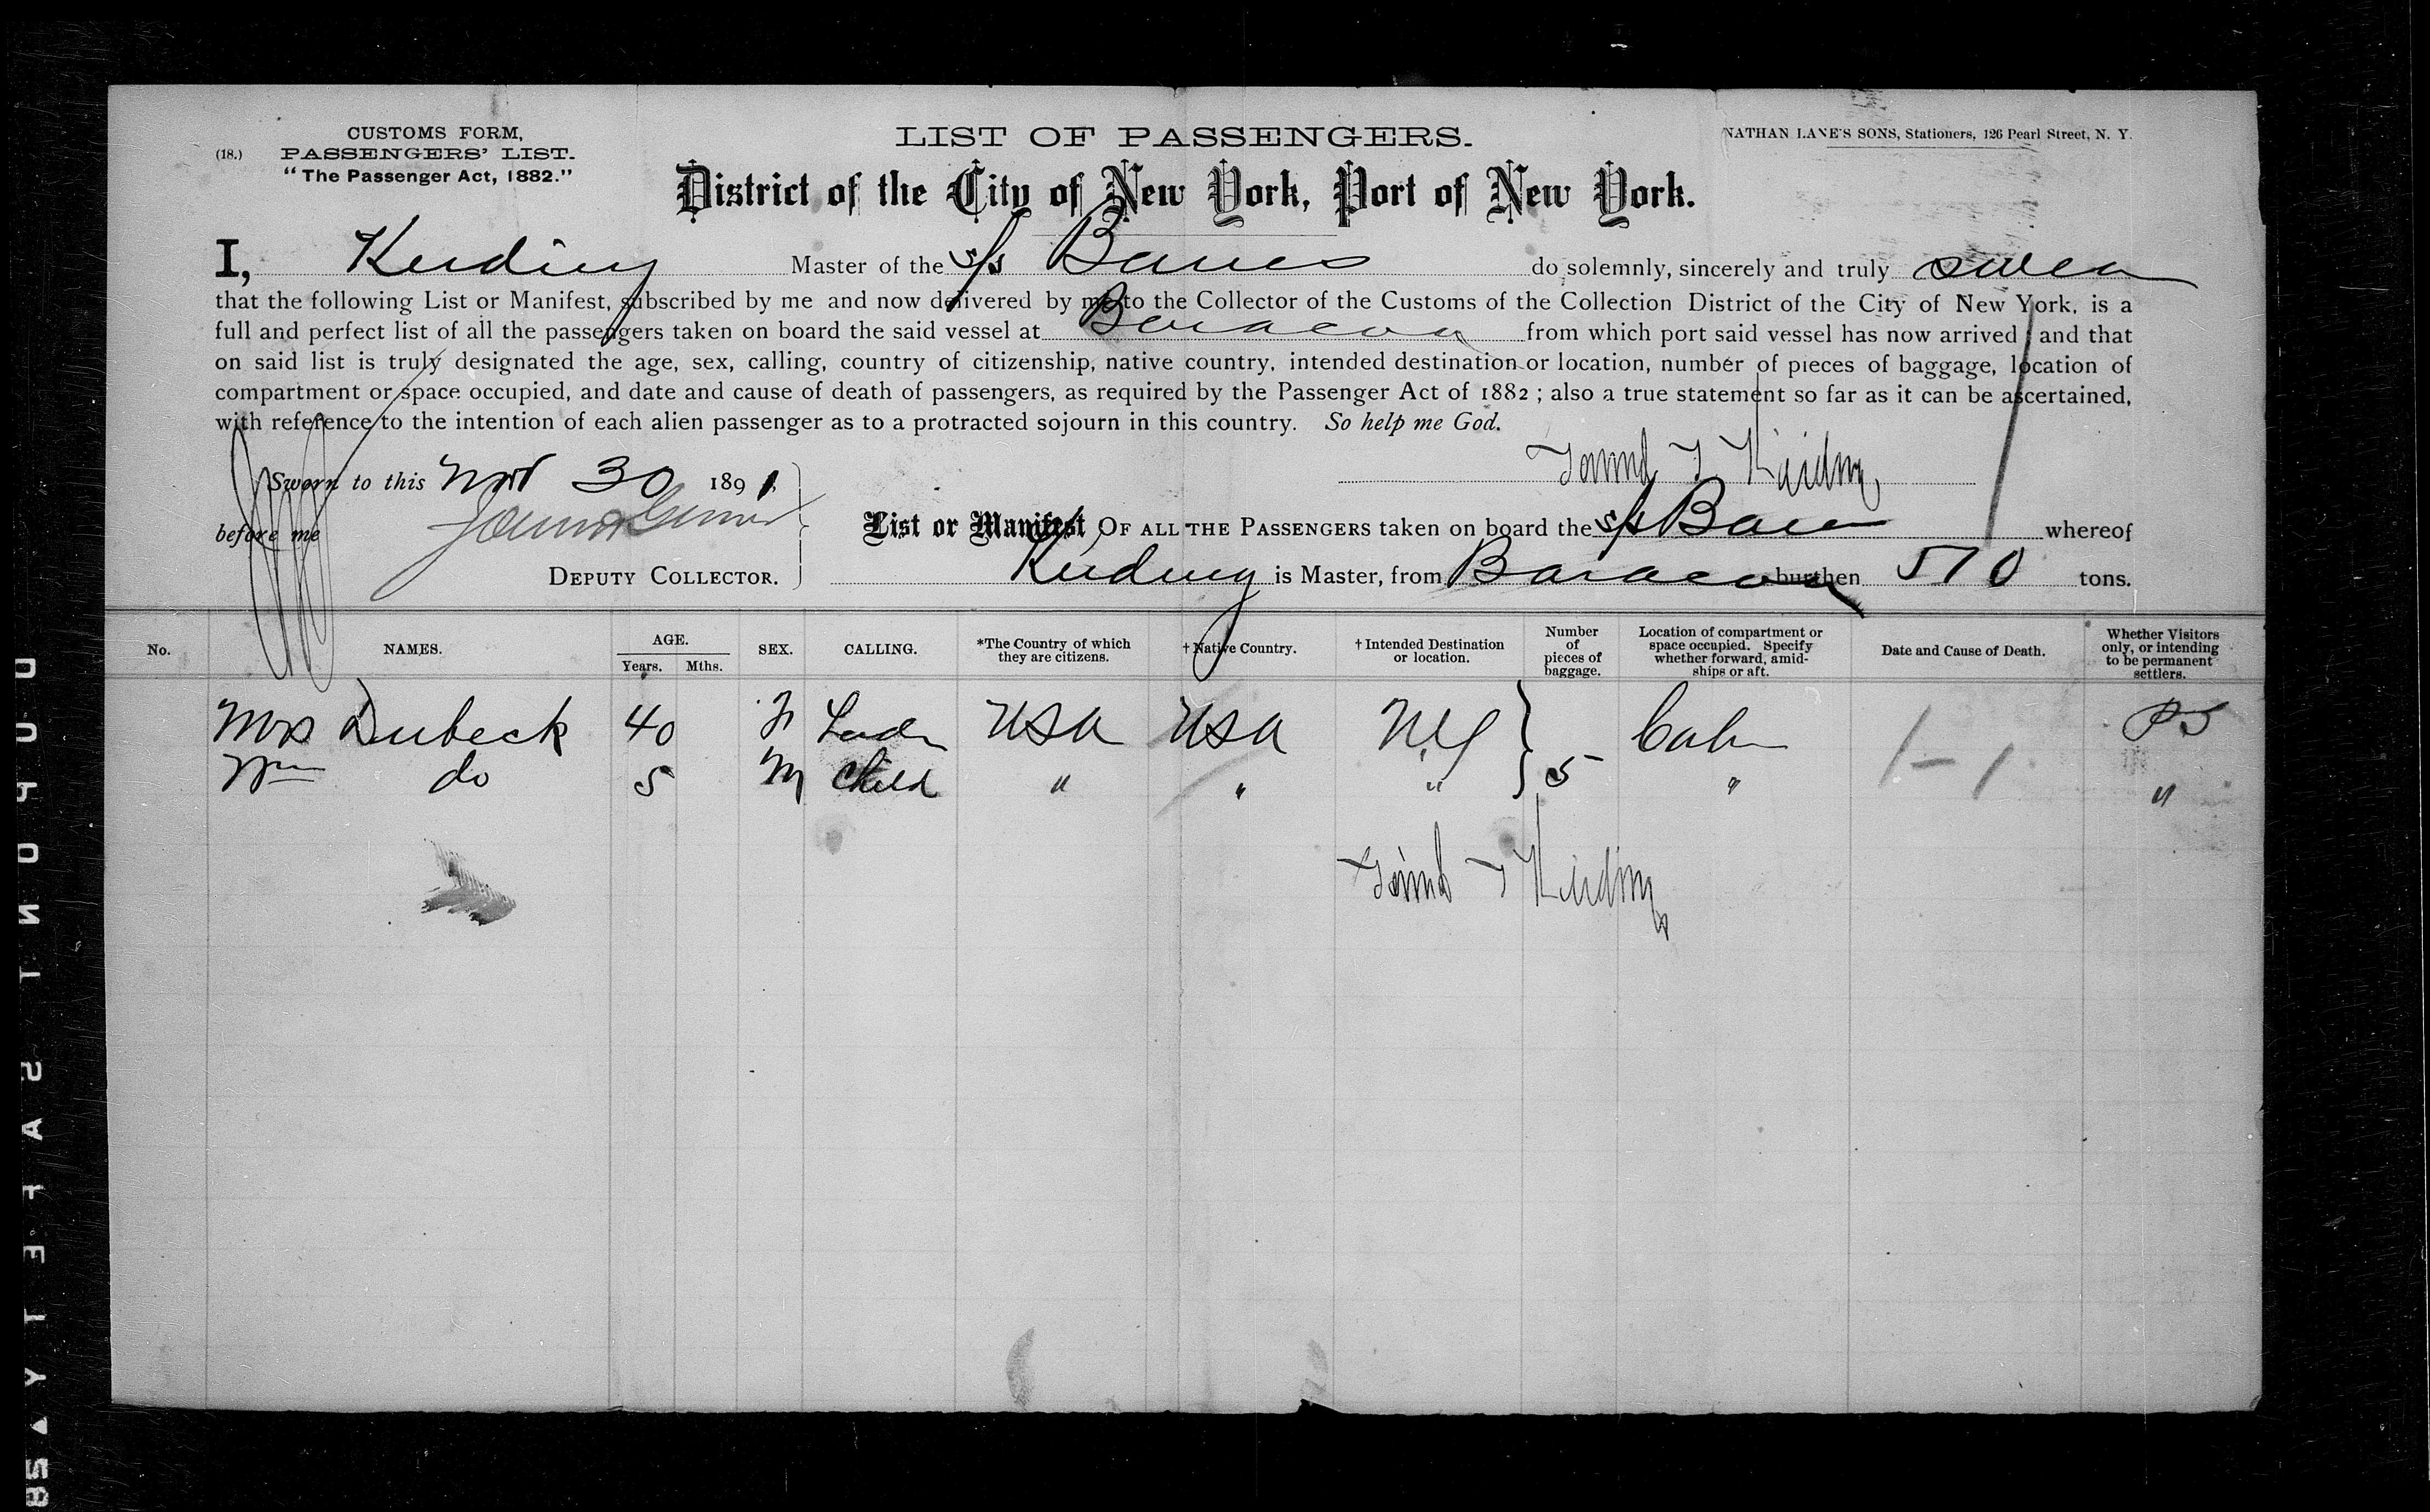 CUSTOMS FORM,
(18.) PASSENGERS' LIST.
"The Passenger Act, 1882."
LIST OF PASSENGERS.
NATHAN LANE'S SONS, Stationers, 126 Pearl Street, N. Y.
District of the City of New York, Port of New York.
I, Master of the s/s Banes do solemnly, sincerely and truly swear
that the following List or Manifest, subscribed by me and now delivered by me to the Collector of the Customs of the Collection District of the City of New York, is a
full and perfect list of all the passengers taken on board the said vessel at Baracoa from which port said vessel has now arrived ; and that
on said list is truly designated the age, sex, calling, country of citizenship, native country, intended destination or location, number of pieces of baggage, location of
compartment or space occupied, and date and cause of death of passengers, as required by the Passenger Act of 1882 ; also a true statement so far as it can be ascertained,
with reference to the intention of each alien passenger as to a protracted sojourn in this country. So help me God.
Sworn to this Nov 30 1891
before me
DEPUTY COLLECTOR.
List or Manifest OF ALL THE PASSENGERS taken on board the s/s whereof
is Master, from Baracoa burthen 510 tons.
No. NAMES. AGE. Years. Mths. SEX. CALLING. *The Country of which they are citizens. † Native Country. † Intended Destination or location. Number of pieces of baggage. Location of compartment or space occupied. Specify whether forward, amidships or aft. Date and Cause of Death. Whether Visitors only, or intending to be permanent settlers.
Mrs Dubeck 40 F USA USA NY Cabin PS
Wm do 5 M Child " " " 5 " "
1 - 1
DUPONT SAFETY 85